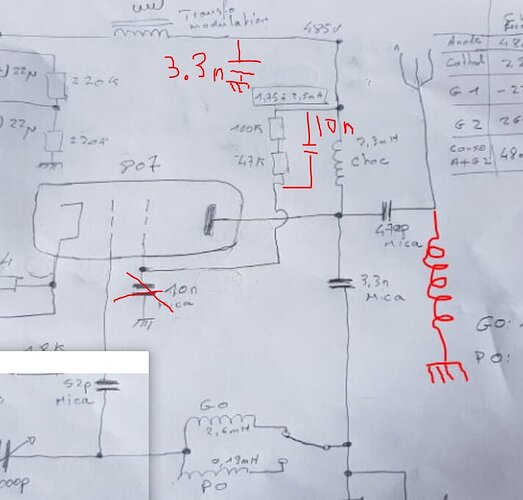 Transfo
modulation
485V
3.3n
10n
1,75 à 2,5mA
100K
47K
2,3mH
Choc
220K
22µ
22µ
220K
807
470p
Mica
10n
Mica
3,3n
Mica
Anode
48
Cathod
G1
G2
26
Conso
A+G2
48m
GO:
PO:
1.8K
52p
Mica
GO
2,6mH
0,19mH
PO
000p